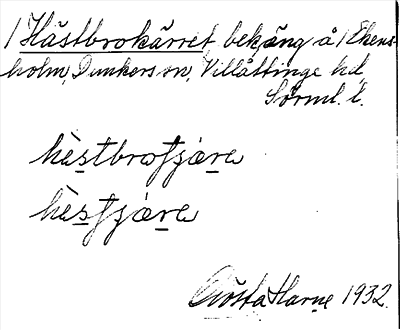 / Hästbrokärret, bekäng å / Ekens-
holm, Dunkers sn, Villåttinge hd,
Sörml. l.
hèstbrotjære
hèstjære
Gösta Harne 1932.